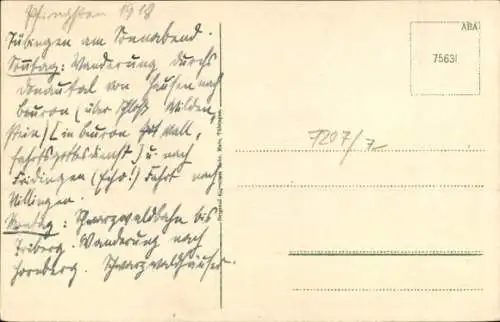 Pfingsten 1918
Tübingen am Sonnabend.
Sonntag: Wanderung durchs
Donautal von Hausen nach
Beuron (über Schloß Wilden
stein) [in Beuron Wall,
fahrtsgottesdienst] u. nach
Fridingen (Echo!) Fahrt nach
Villingen.
Montag: Schwarzwaldbahn bis
Triberg. Wanderung nach
Hornberg. Schwarzwaldhäuser.
ABA
75631
7207/7